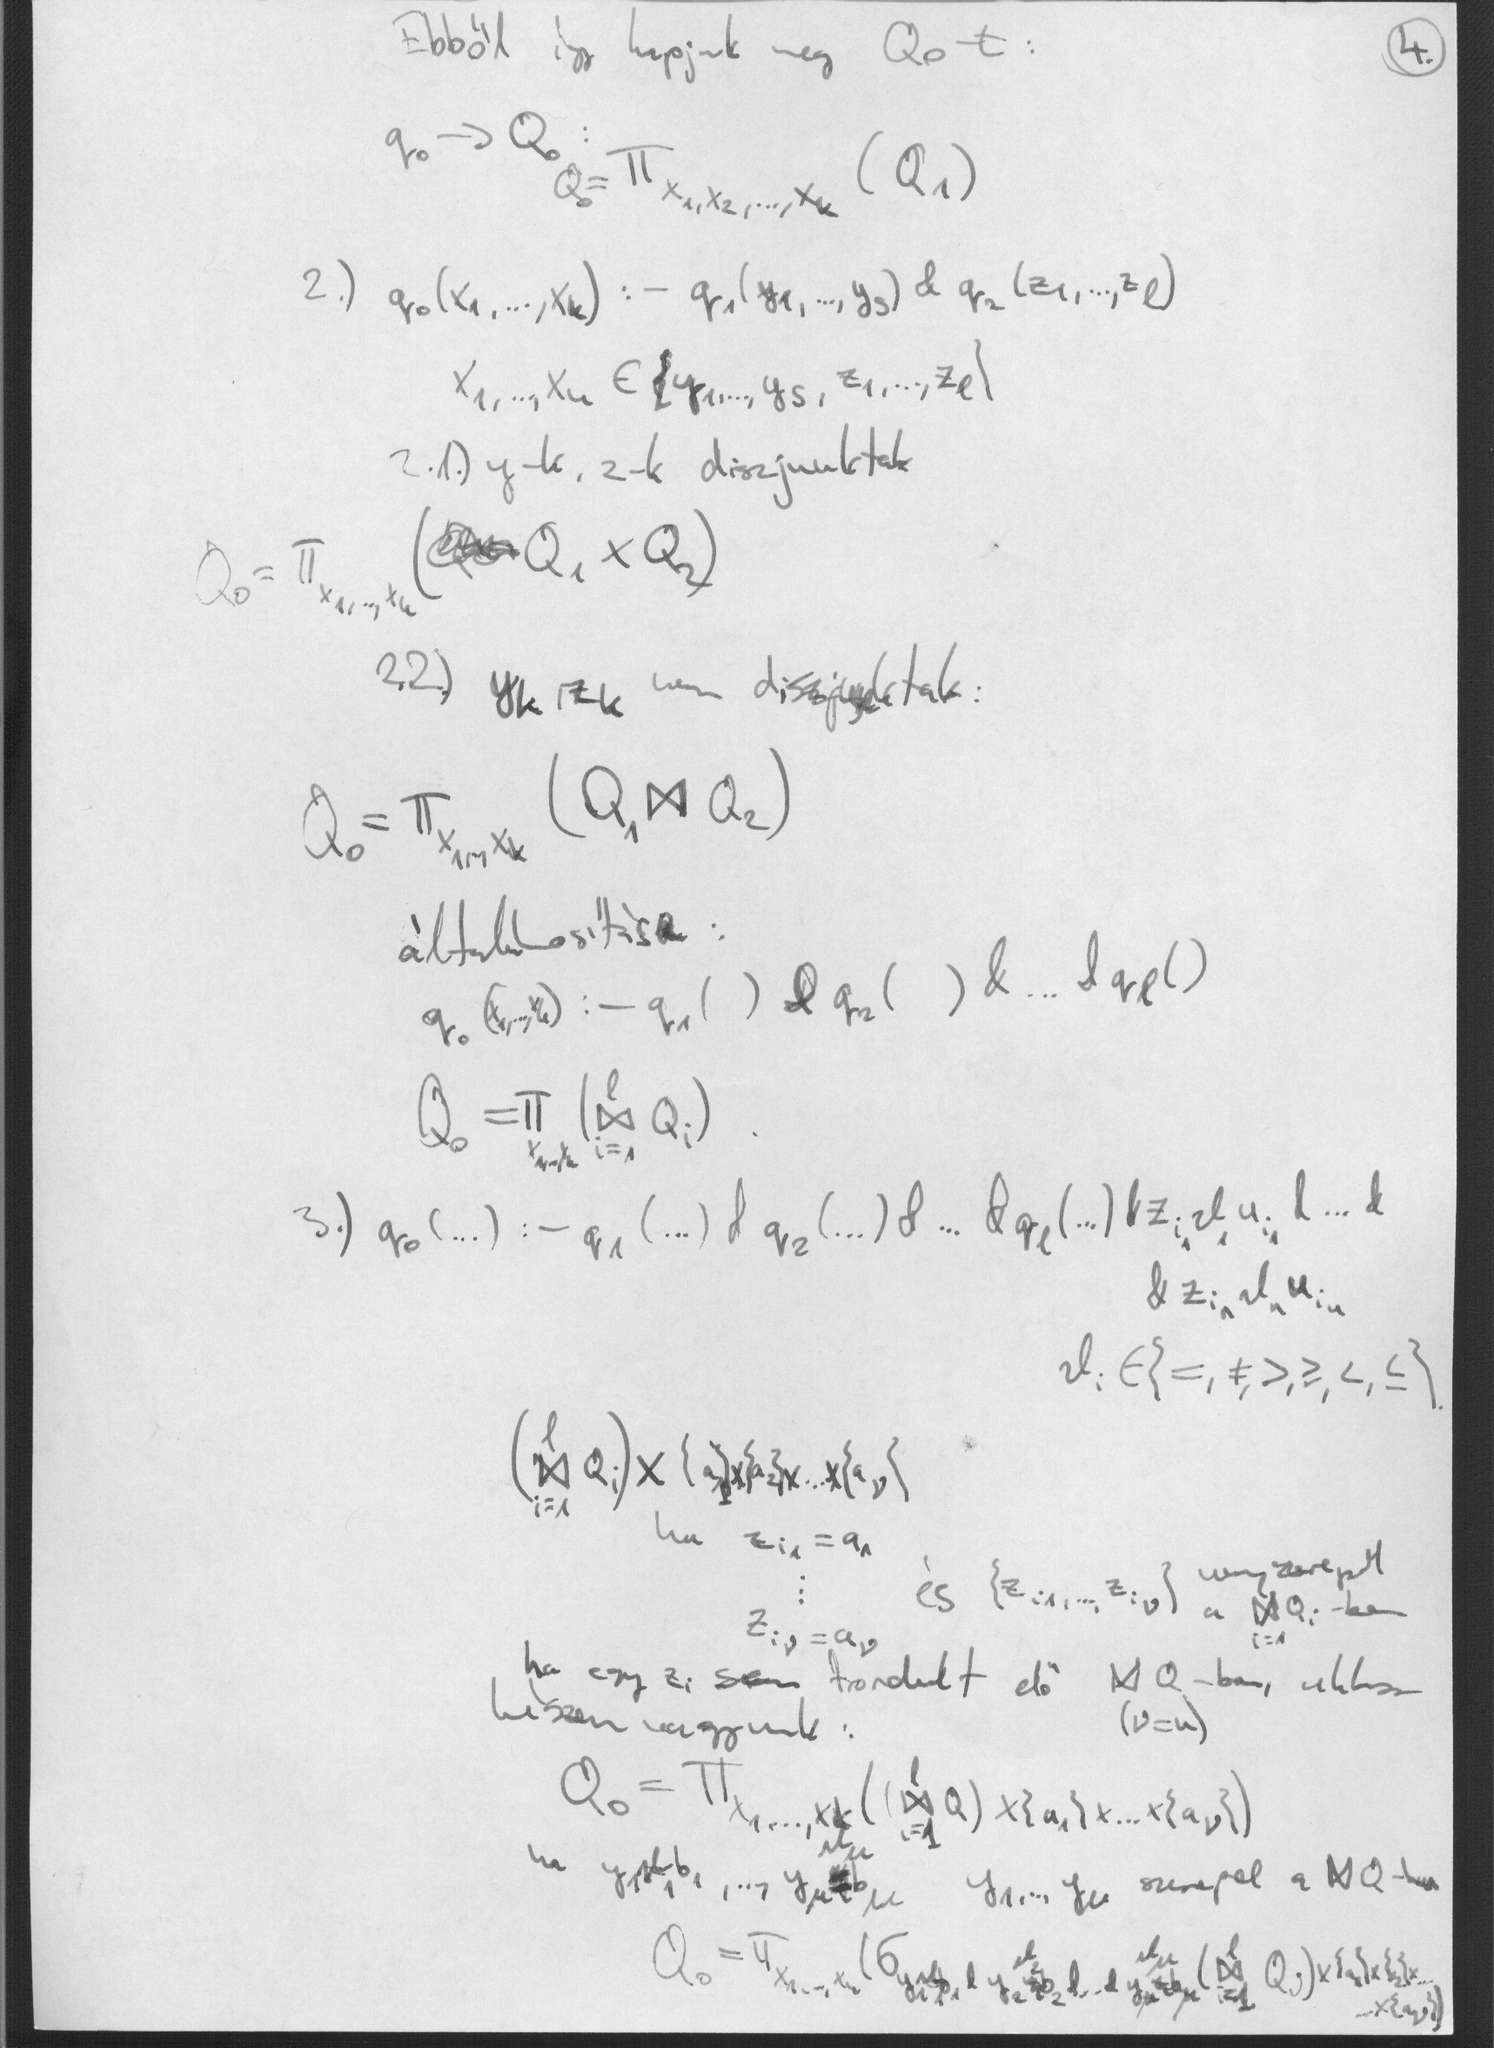 Ebből így kapjuk meg Q₀-t:
4.
q₀ → Q₀:
Q₀ = Π x₁, x₂, ..., xₖ (Q₁)
2.) q₀(x₁, ..., xₖ) :- q₁(y₁, ..., yₛ) & q₂(z₁, ..., zₗ)
x₁, ..., xₖ ∈ {y₁, ..., yₛ, z₁, ..., zₗ}
2.1.) y-k, z-k diszjunktak
Q₀ = Π x₁, ..., xₖ (Q₁ × Q₂)
2.2.) yk, zk nem diszjunktak:
Q₀ = Π x₁, ..., xₖ (Q₁ ⋈ Q₂)
általánosítása:
q₀(x₁, ..., xₖ) :- q₁( ) & q₂( ) & ... & qₗ()
Q₀ = Π x₁, ..., xₖ (⋈ᵢ₌₁ˡ Qᵢ)
3.) q₀(...) :- q₁(...) & q₂(...) & ... & qₗ(...) & z_{i₁} ϑ₁ u_{i₁} & ... &
& z_{iₙ} ϑₙ u_{iₙ}
ϑᵢ ∈ {=, ≠, >, ≥, <, ≤}.
(⋈ᵢ₌₁ˡ Qᵢ) × {a₁} × {a₂} × ... × {a_ν}
ha z_{i₁} = a₁
⋮
és {z_{i₁}, ..., z_{iν}} szerepel
z_{iν} = a_ν
a ⋈ᵢ₌₁ Qᵢ-ben
ha egy zᵢ sem fordult elő ⋈ Q-ban, akkor
készen vagyunk:
(ν = n)
Q₀ = Π x₁, ..., xₖ ((⋈ᵢ₌₁ˡ Q) × {a₁} × ... × {a_ν})
ha y₁ ϑ₁ b₁, ..., y_μ ϑ_μ b_μ y₁, ..., y_μ szerepel a ⋈ Q-ban
Q₀ = Π x₁, ..., xₖ (σ y₁ ϑ₁ b₁ & y₂ ϑ₂ b₂ & ... & y_μ ϑ_μ b_μ (⋈ᵢ₌₁ˡ Qᵢ) × {a₁} × {a₂} × ...
... × {a_ν})